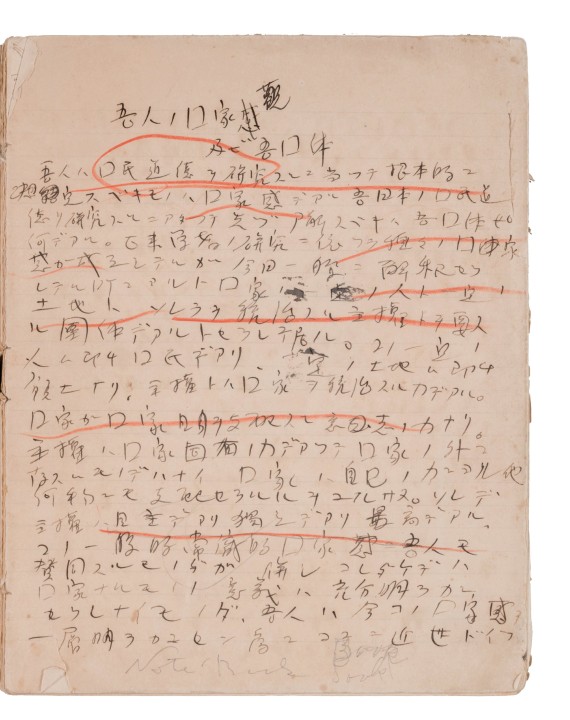 吾人ノ口家観
及ビ吾口体
吾人ハ口民道徳ヲ研究スルニ当ッテ根本的ニ
スベキモノハ口家感デアル吾日本ノ口民道
徳ヲ研究スルニアタッテ先ヅ解スベキハ吾口体
何デアル。古来学者ノ研究ニ依ッテ種々ノ口体
今日一般ニ解釈セラ
レテル所ニアルト口家 人ト
土地トソレラヲ統治スル主権トヲ
ル団体デアルトセラレテ居ル。一定ノ
人ハ即チ口民デアリ、一定ノ土地ハ即チ
領土ナリ、主権トハ口家ヲ統治スル力デアル。
口家ガ口家自身ヲ支配スル意志ノ力ナリ。
主権ハ口家固有ノ力デアッテ口家ノ外ニ
存スルモノデハナイ 口家ハ自己ノ力ニヨル他
何物ニモ支配セラルルヲユルサズ。ソレデ
主権ハ自主デアリ独立デアリ最高デアル。
コノ一般的常識的口家 吾人モ
賛同スルモノダガ 併しコレダケデハ
口家ナルモノノ意義ハ充分明ラカニ
セラレナイモノダ、吾人ハ今コノ口家
一層明ラカニセン為ニココニ近世ドイツ
Note Book